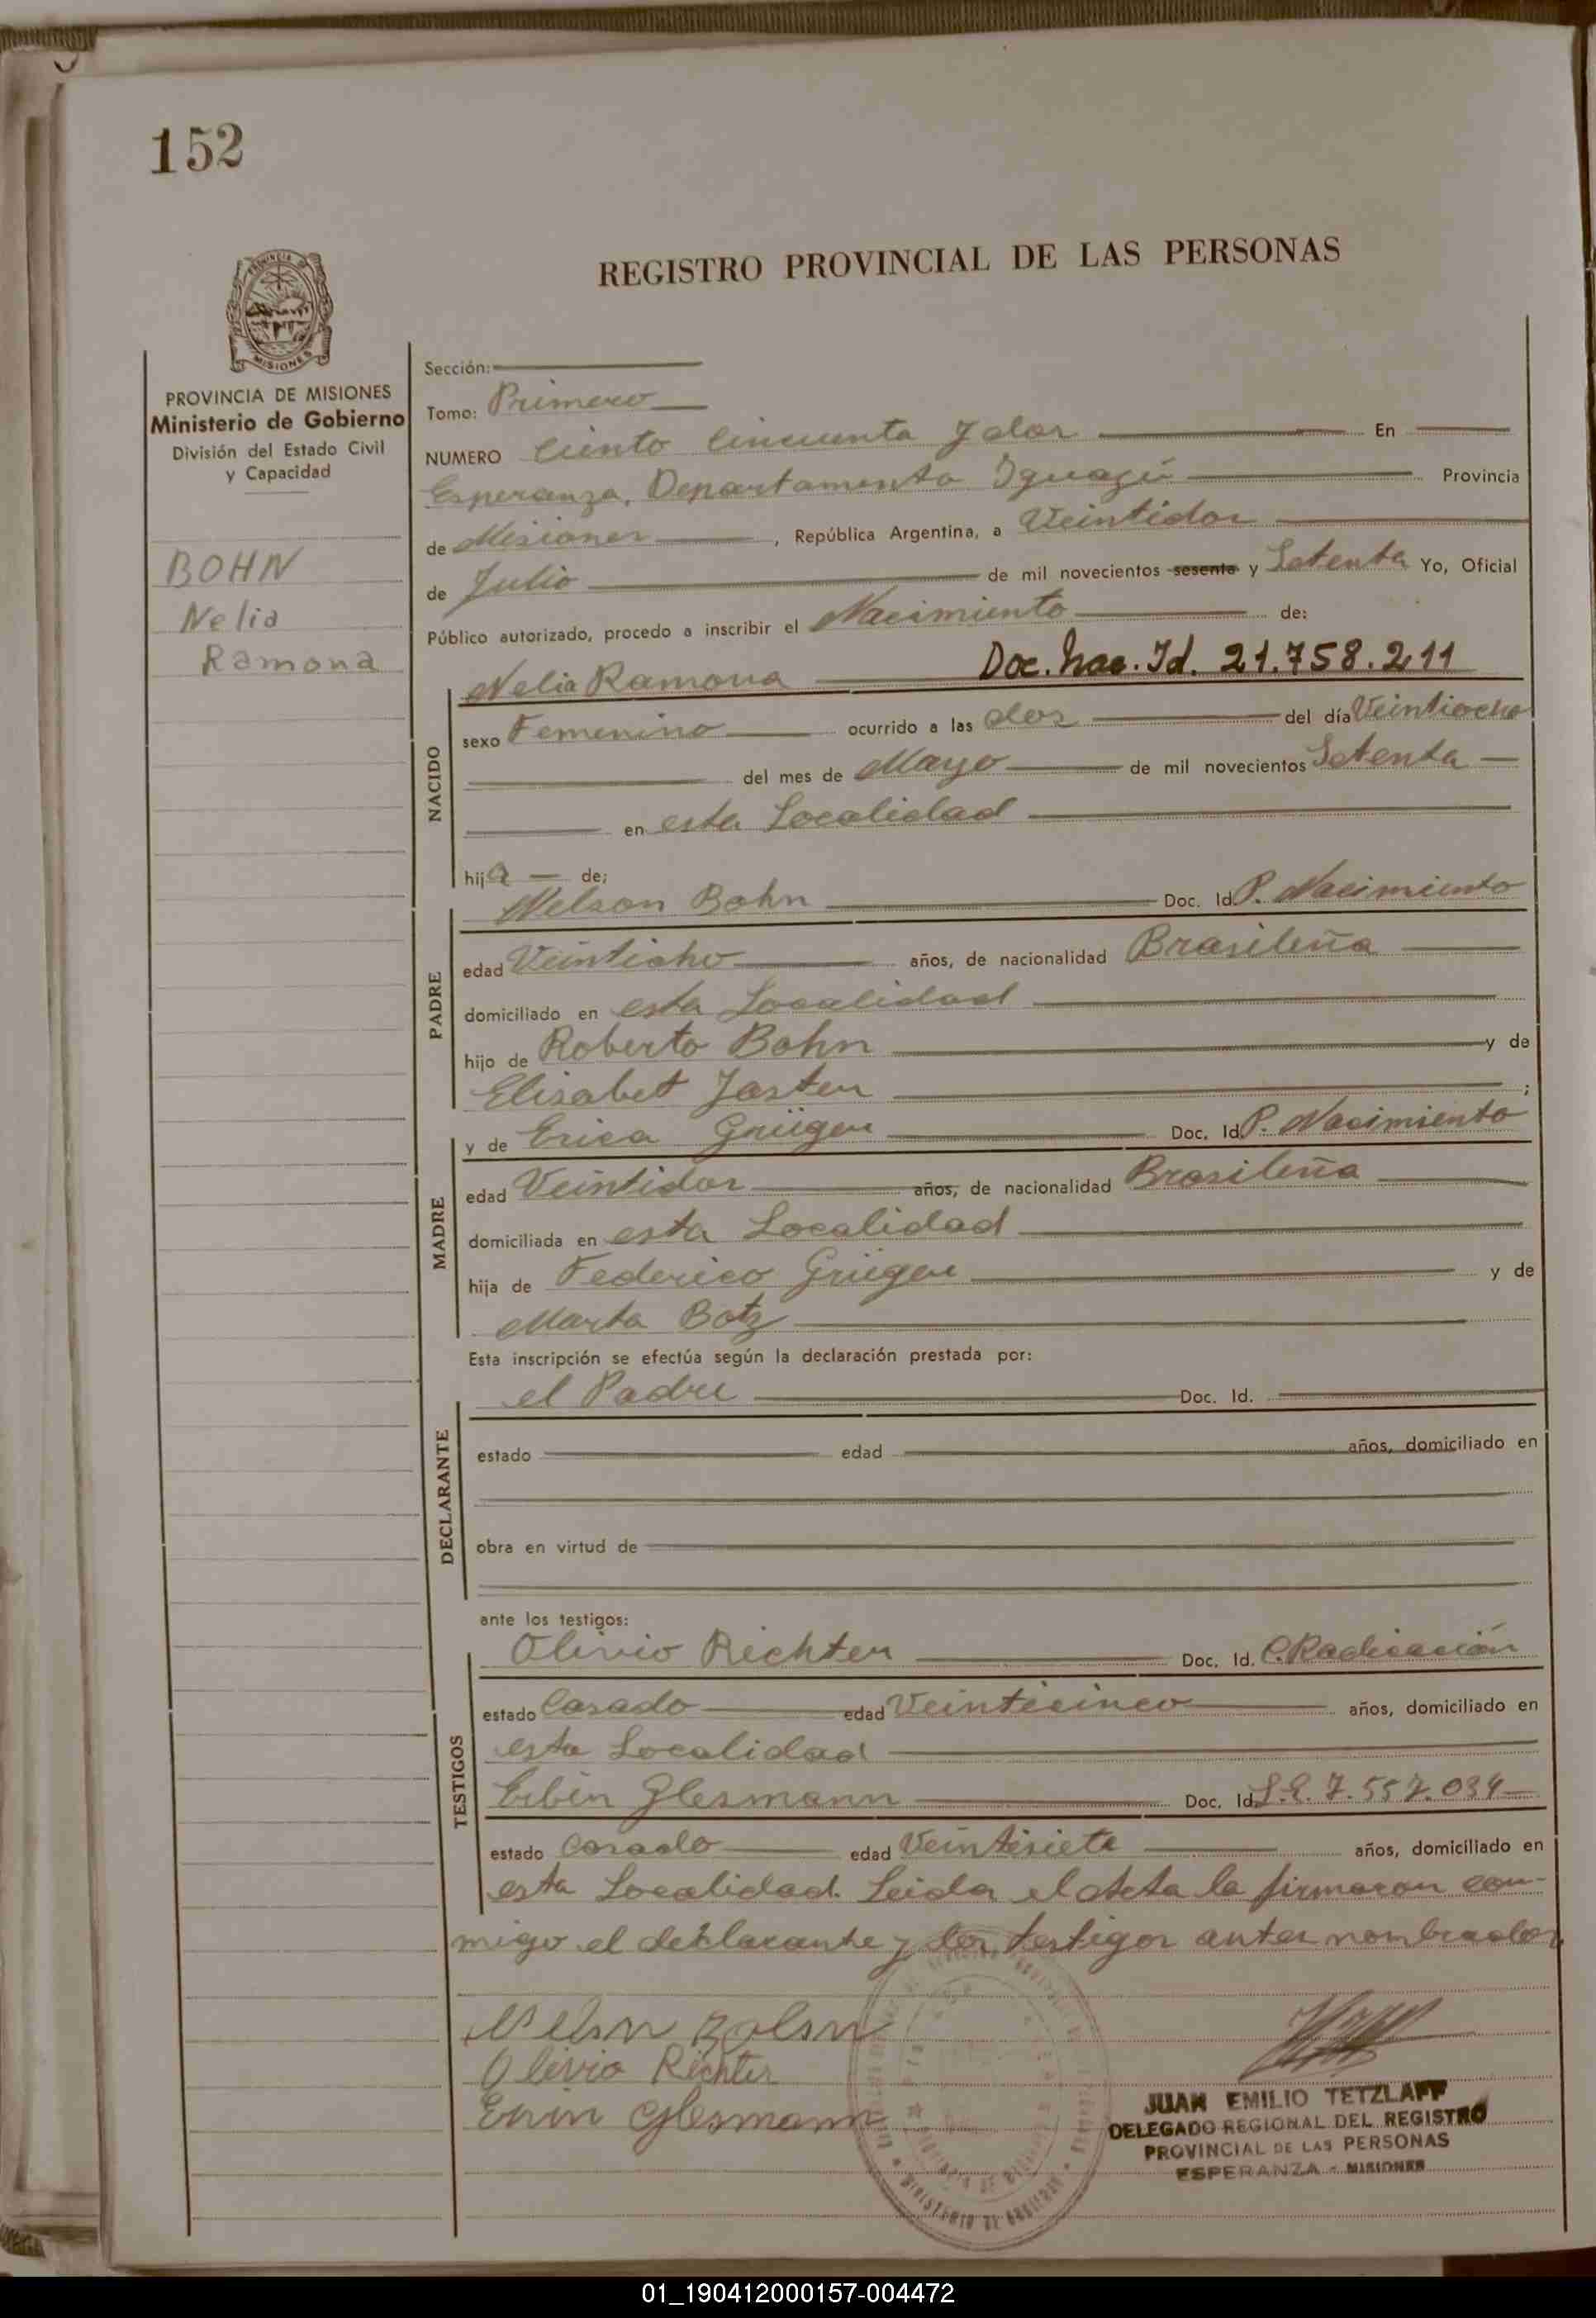 152
REGISTRO PROVINCIAL DE LAS PERSONAS
PROVINCIA DE MISIONES
MISIONES
PROVINCIA DE MISIONES
Ministerio de Gobierno
División del Estado Civil
y Capacidad
BOHN
Nelia
Ramona
Sección:
Tomo: Primero
NUMERO Ciento Cincuenta y dos En
Esperanza, Departamento Iguazú Provincia
de Misiones, República Argentina, a Veintidos
de Julio de mil novecientos sesenta y Setenta Yo, Oficial
Público autorizado, procedo a inscribir el Nacimiento de:
Nelia Ramona Doc. Nac. Id. 21.758.211
NACIDO
sexo Femenino ocurrido a las dos del día Veintiocho
del mes de Mayo de mil novecientos Setenta
en esta Localidad
hija de;
Nelson Bohn Doc. Id. P. Nacimiento
PADRE
edad Veintiocho años, de nacionalidad Brasileña
domiciliado en esta Localidad
hijo de Roberto Bohn y de
Elisabet Jasten ;
y de Erica Grüger Doc. Id. P. Nacimiento
MADRE
edad Veintidos años, de nacionalidad Brasileña
domiciliada en esta Localidad
hija de Federico Grüger y de
Marta Botz
Esta inscripción se efectúa según la declaración prestada por:
el Padre Doc. Id.
DECLARANTE
estado edad años, domiciliado en
obra en virtud de
ante los testigos:
Olivio Richter Doc. Id. C. Radicación
TESTIGOS
estado Casado edad Veinticinco años, domiciliado en
esta Localidad
Erbin Glesmann Doc. Id. L.E. 7.557.034
estado Casado edad Veintisiete años, domiciliado en
esta Localidad. Leida el Acta la firmaron con-
migo el declarante y los testigos antes nombrados
Nelson Bohn
Olivio Richter
Ervin Glesmann
MINISTERIO DE GOBIERNO
JUAN EMILIO TETZLAFF
DELEGADO REGIONAL DEL REGISTRO
PROVINCIAL DE LAS PERSONAS
ESPERANZA - MISIONES
01_190412000157-004472